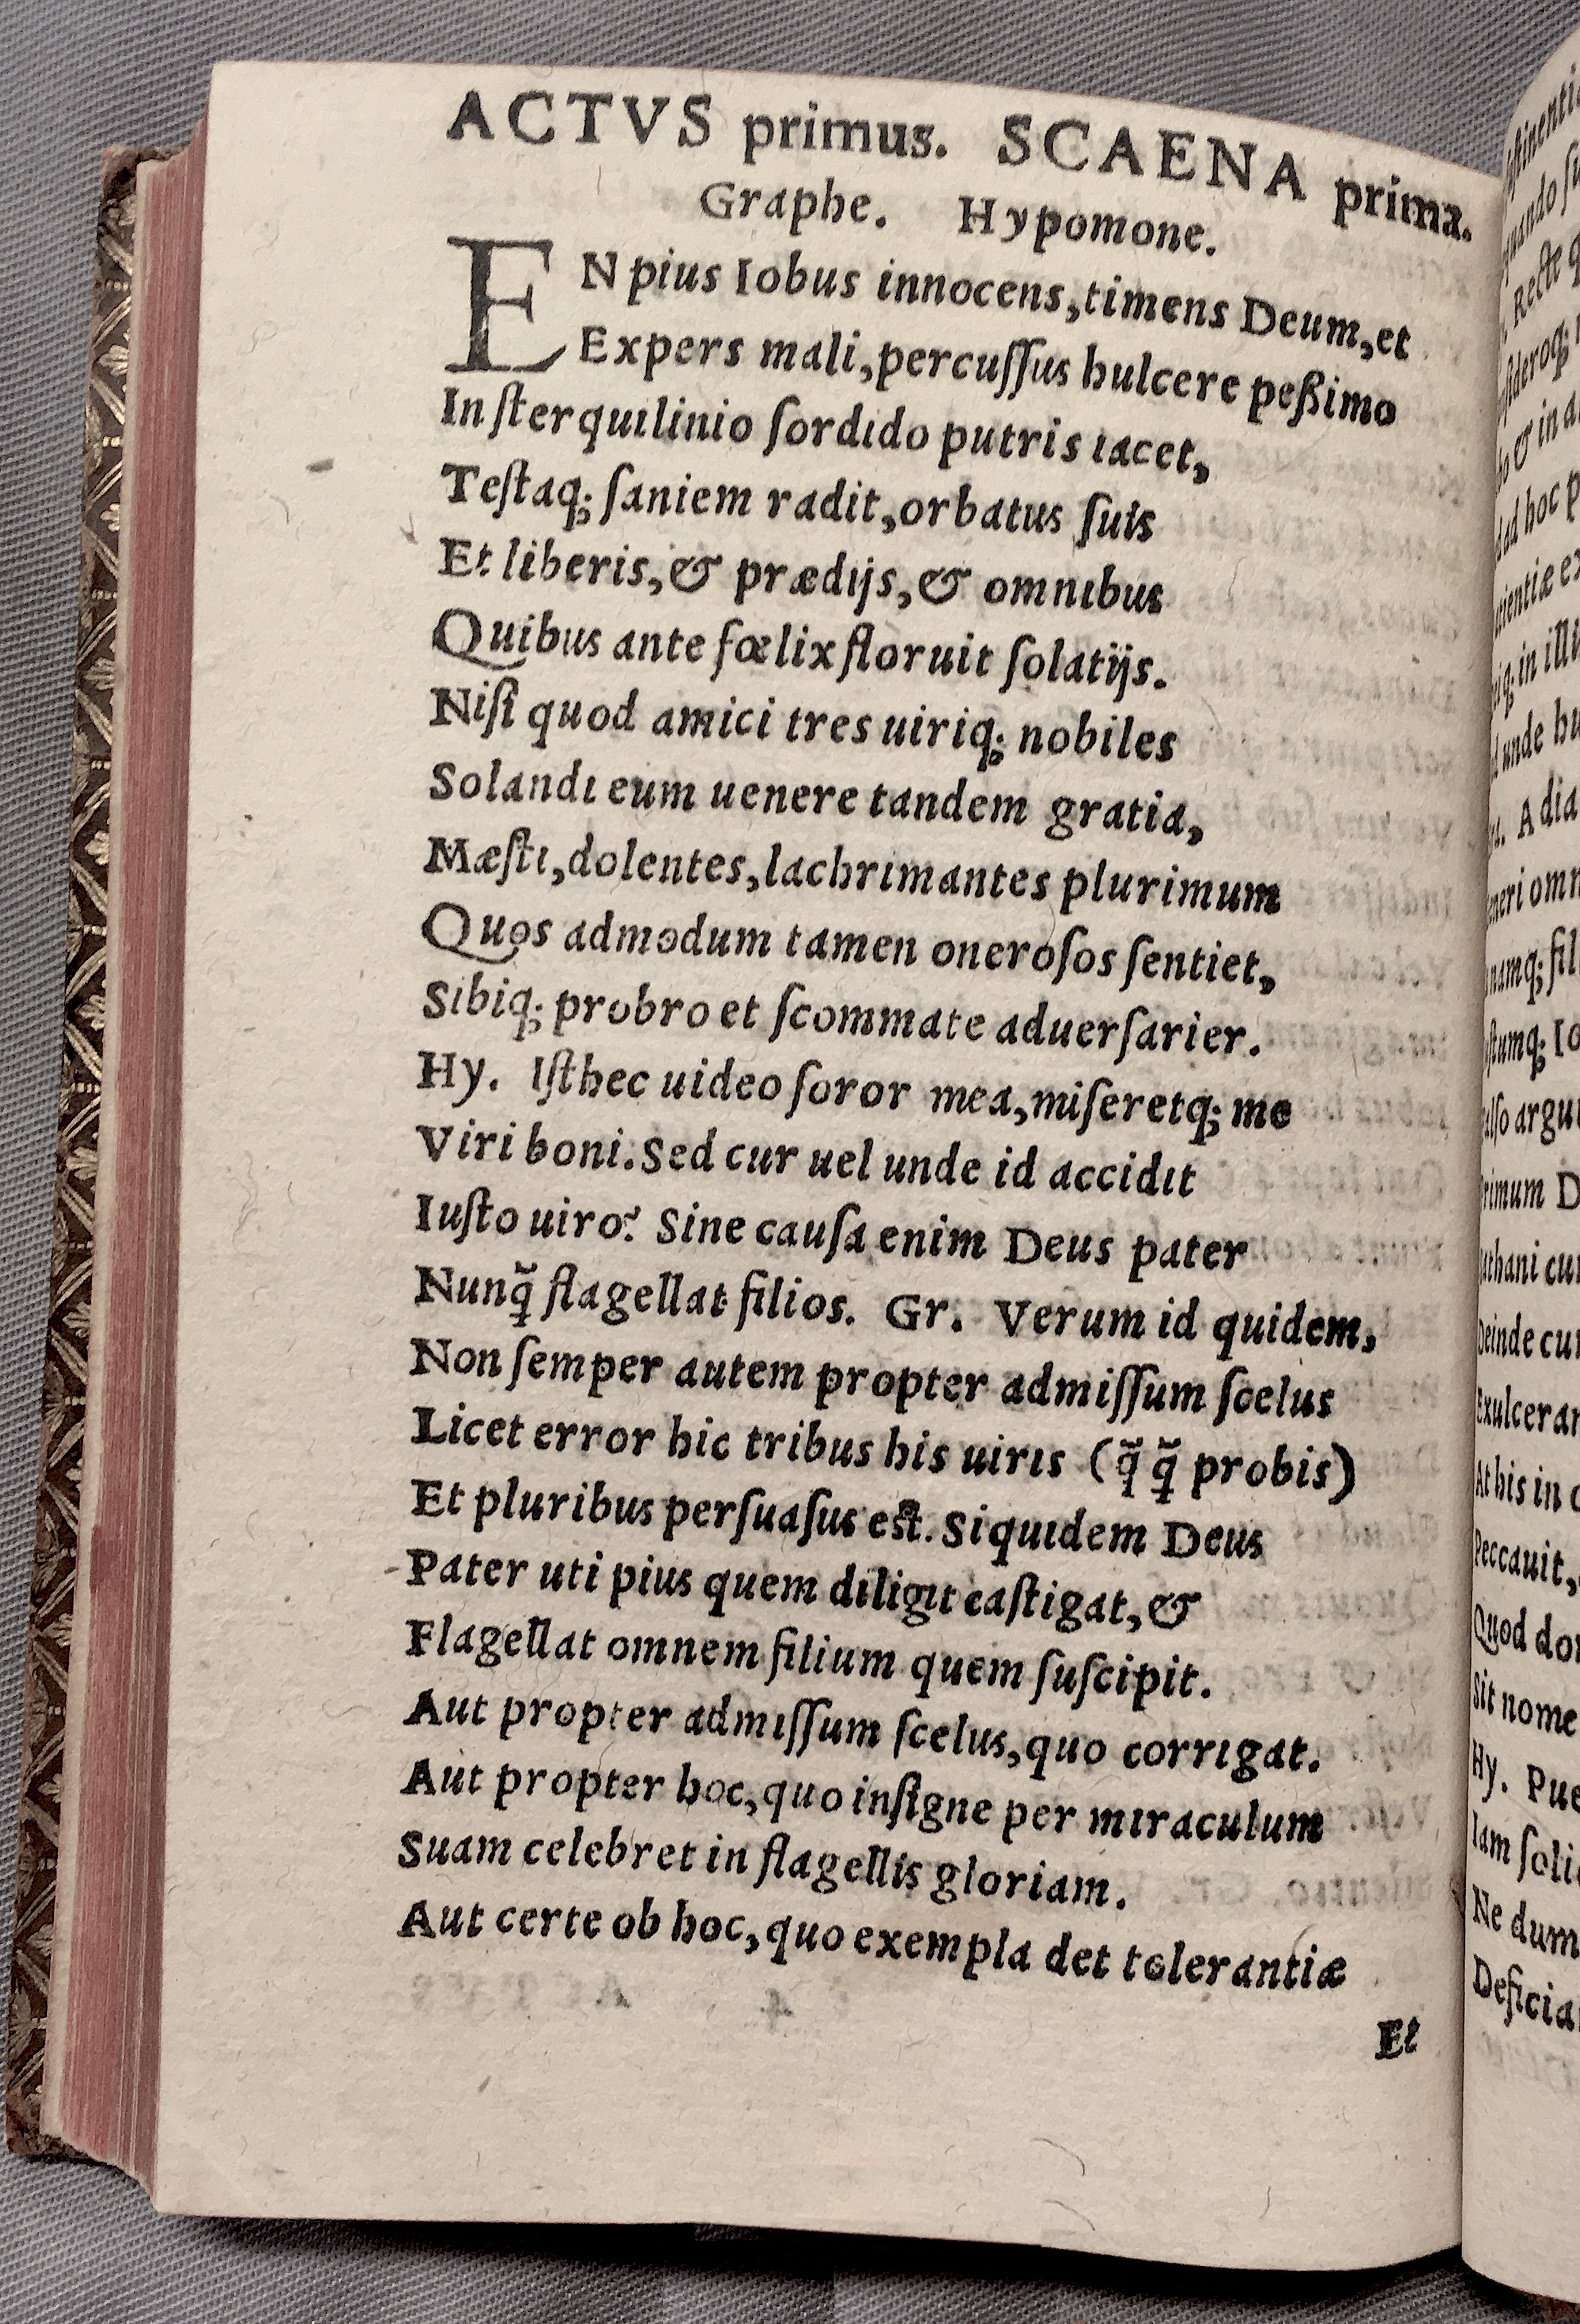 ACTVS primus. SCAENA prima.
Graphe. Hypomone.
EN pius Iobus innocens, timens Deum, et
Expers mali, percuſſus hulcere peßimo
In ſterquilinio ſordido putris iacet,
Teſtaq; ſaniem radit, orbatus ſuis
Et liberis, & prædijs, & omnibus
Quibus ante fœlix floruit ſolatijs.
Niſi quod amici tres uiriq; nobiles
Solandi eum uenere tandem gratia,
Mæſti, dolentes, lachrimantes plurimum
Quos admodum tamen oneroſos ſentiet,
Sibiq; probro et ſcommate aduerſarier.
Hy. Iſthec uideo ſoror mea, miſeretq; me
Viri boni. Sed cur uel unde id accidit
Iuſto uiro? Sine cauſa enim Deus pater
Nunq̃ flagellat filios. Gr. Verum id quidem,
Non ſemper autem propter admiſſum ſcelus
Licet error hic tribus his uiris (q̃ q̃ probis)
Et pluribus perſuaſus eſt. Siquidem Deus
Pater uti pius quem diligit caſtigat, &
Flagellat omnem filium quem ſuſcipit.
Aut propter admiſſum ſcelus, quo corrigat.
Aut propter hoc, quo inſigne per miraculum
Suam celebret in flagellis gloriam.
Aut certe ob hoc, quo exempla det tolerantiæ
Et
unde
A dia
Deinde
Peccauit,
Quod
Sit nome
Hy.
Iam
Ne dum